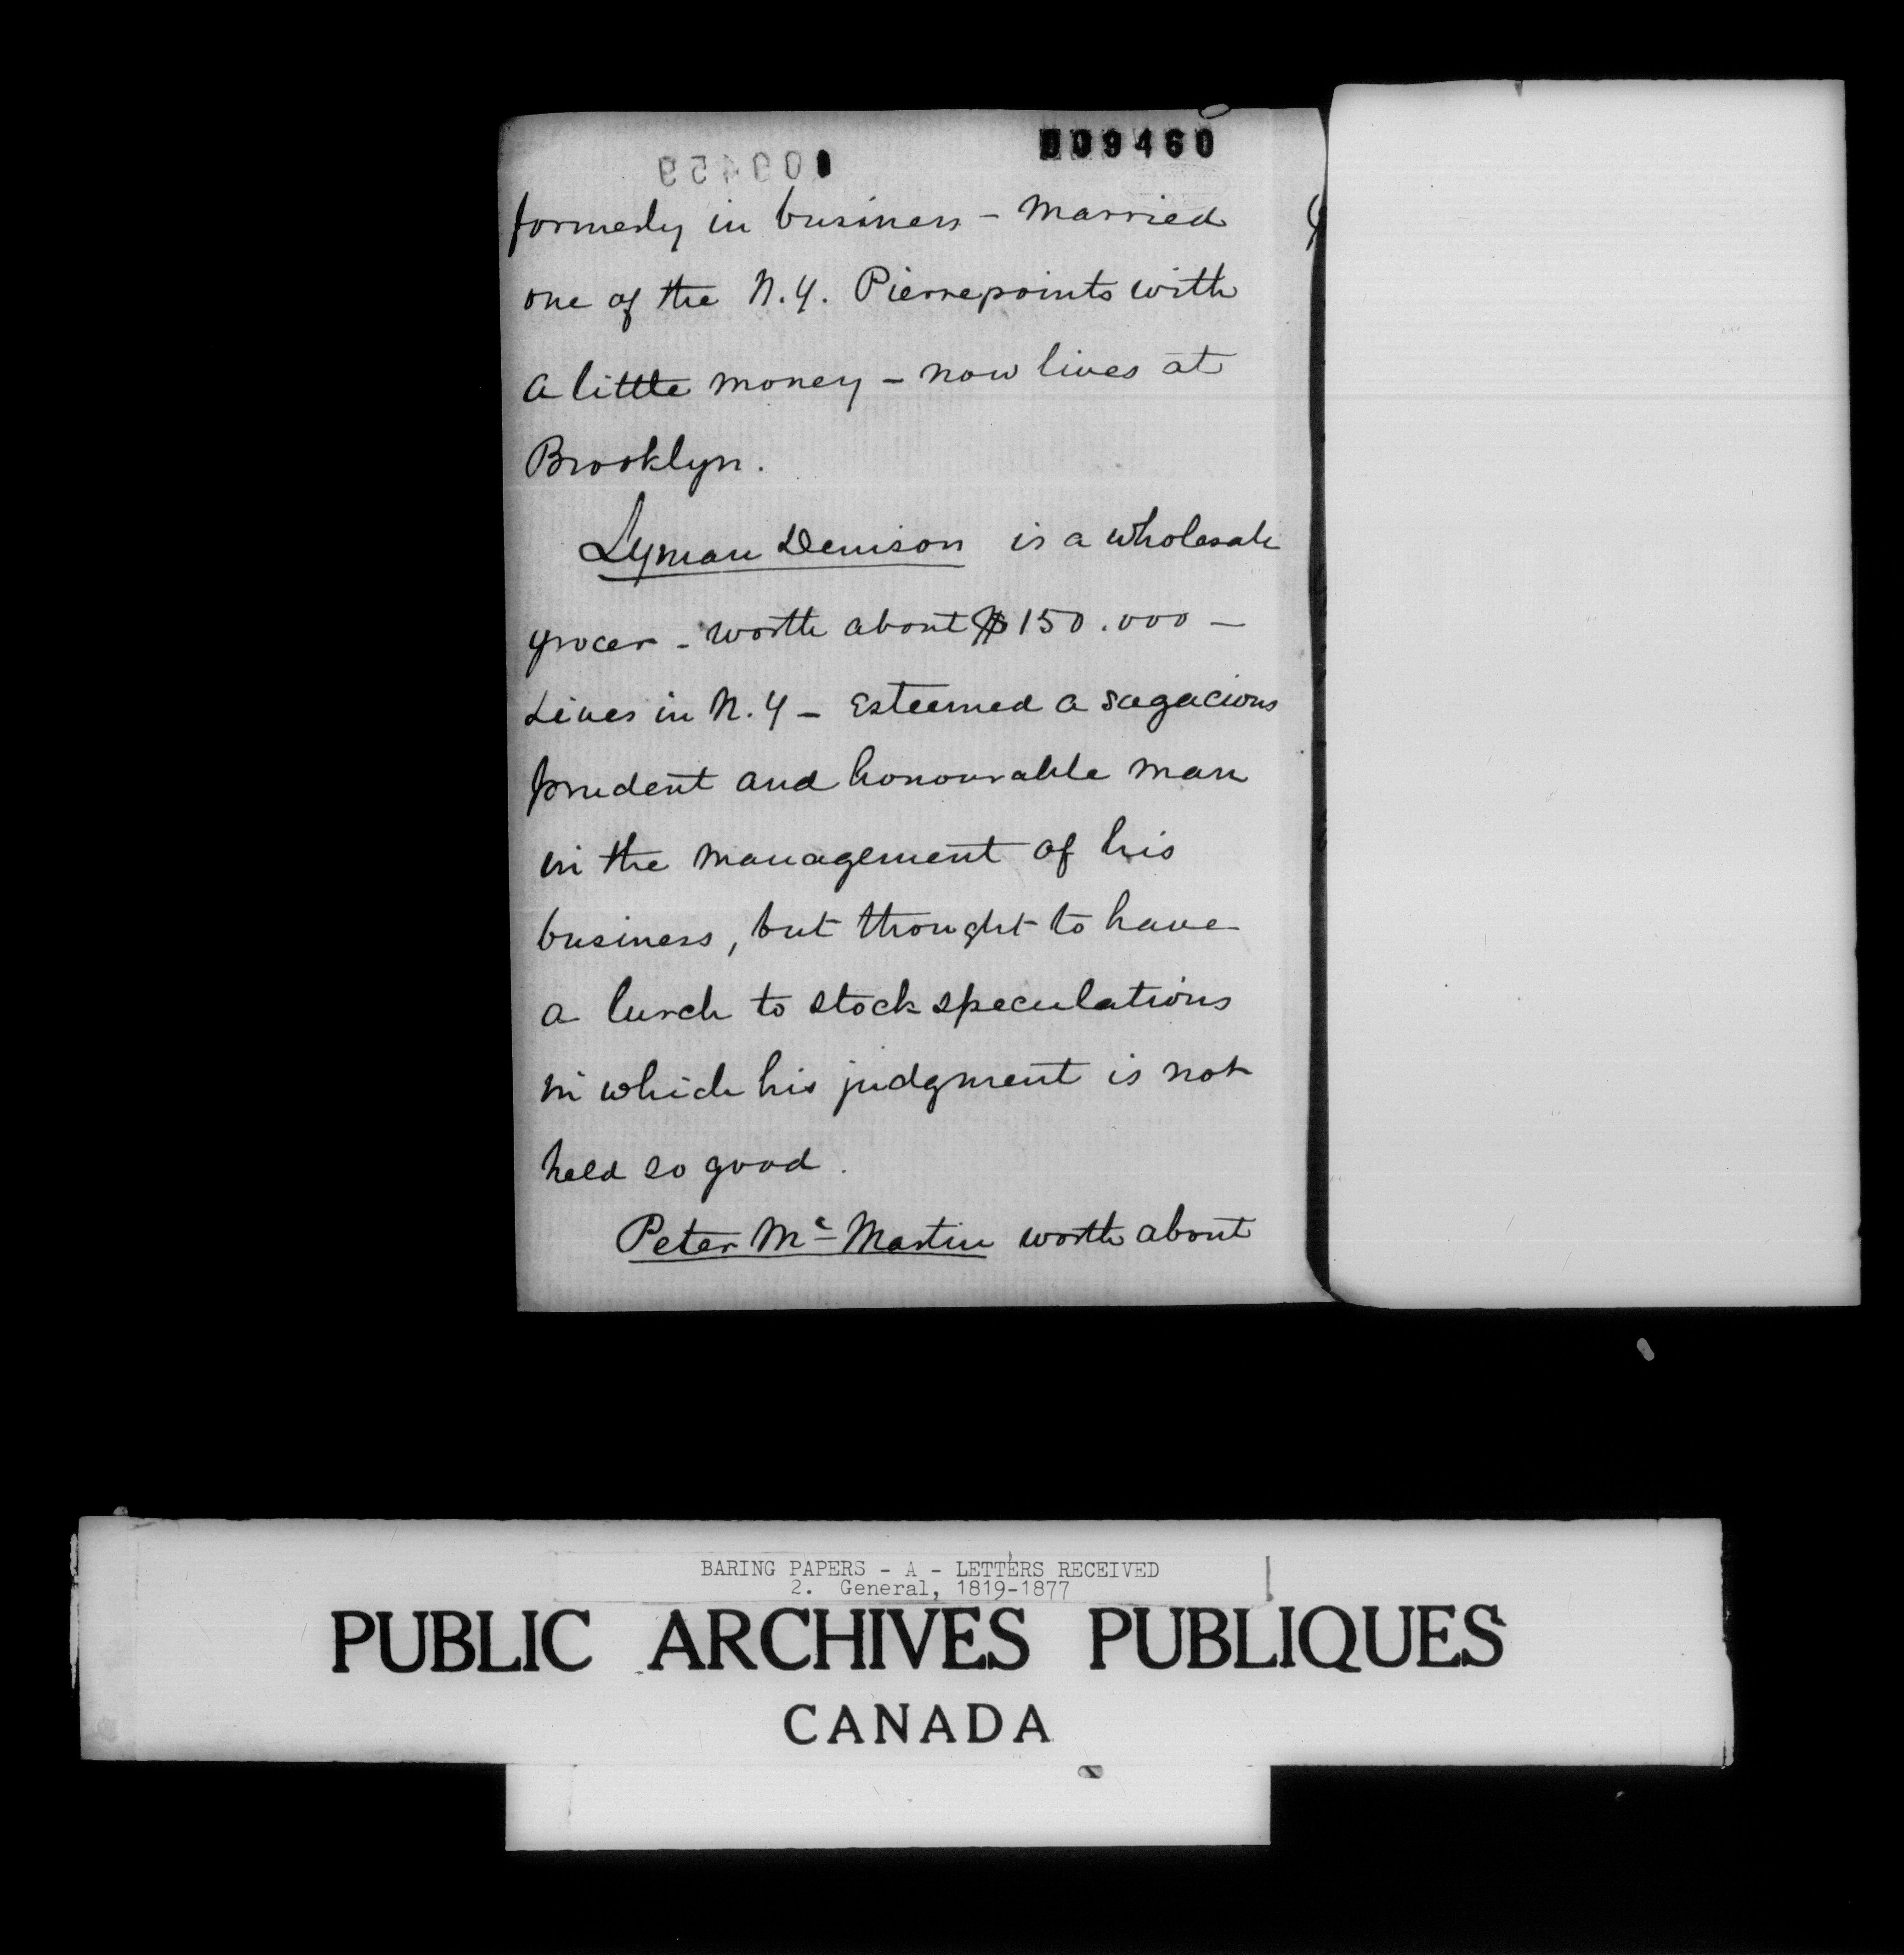 009460
009459
formerly in business - married
one of the N.Y. Pierrepoints with
a little money - now lives at
Brooklyn.
Lyman Denison is a wholesale
grocer - worth about $150.000 -
Lives in N.Y - Esteemed a sagacious
prudent and honourable man
in the management of his
business, but thought to have
a lurch to stock speculations
in which his judgment is not
held so good.
Peter Mc Martin worth about
BARING PAPERS - A - LETTERS RECEIVED
2. General, 1819-1877
PUBLIC ARCHIVES PUBLIQUES
CANADA